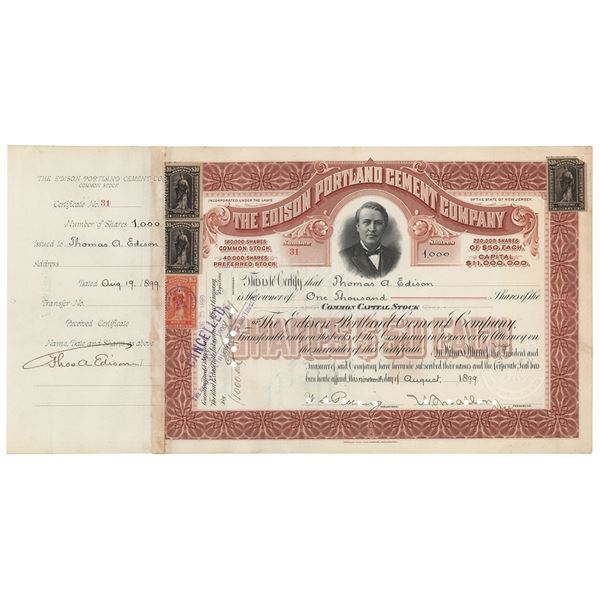 THE EDISON PORTLAND CEMENT CO.
COMMON STOCK
Certificate No. 31
Number of Shares 1,000
Issued to Thomas A. Edison
Address
Dated Aug. 19, 1899
Transfer No.
Received Certificate
Name, Date and Shares as above
Thos A Edison
INCORPORATED UNDER THE LAWS
OF THE STATE OF NEW JERSEY.
THE EDISON PORTLAND CEMENT COMPANY
180,000 SHARES
COMMON STOCK
40,000 SHARES
PREFERRED STOCK
Number
31
Shares
1,000
220,000 SHARES
OF $50. EACH.
CAPITAL
$11,000,000.
This is to Certify that Thomas A. Edison
is the owner of One Thousand Shares of the
COMMON CAPITAL STOCK
of The Edison Portland Cement Company,
Transferable only on the books of the Company in person or by Attorney on
the surrender of this Certificate. In Witness Whereof the President and
Treasurer of said Company have hereunto subscribed their names and the Corporate Seal has
been hereto affixed this nineteenth day of August 1899.
CANCELLED
SHARES $50 EACH
TREASURER.
PRESIDENT.